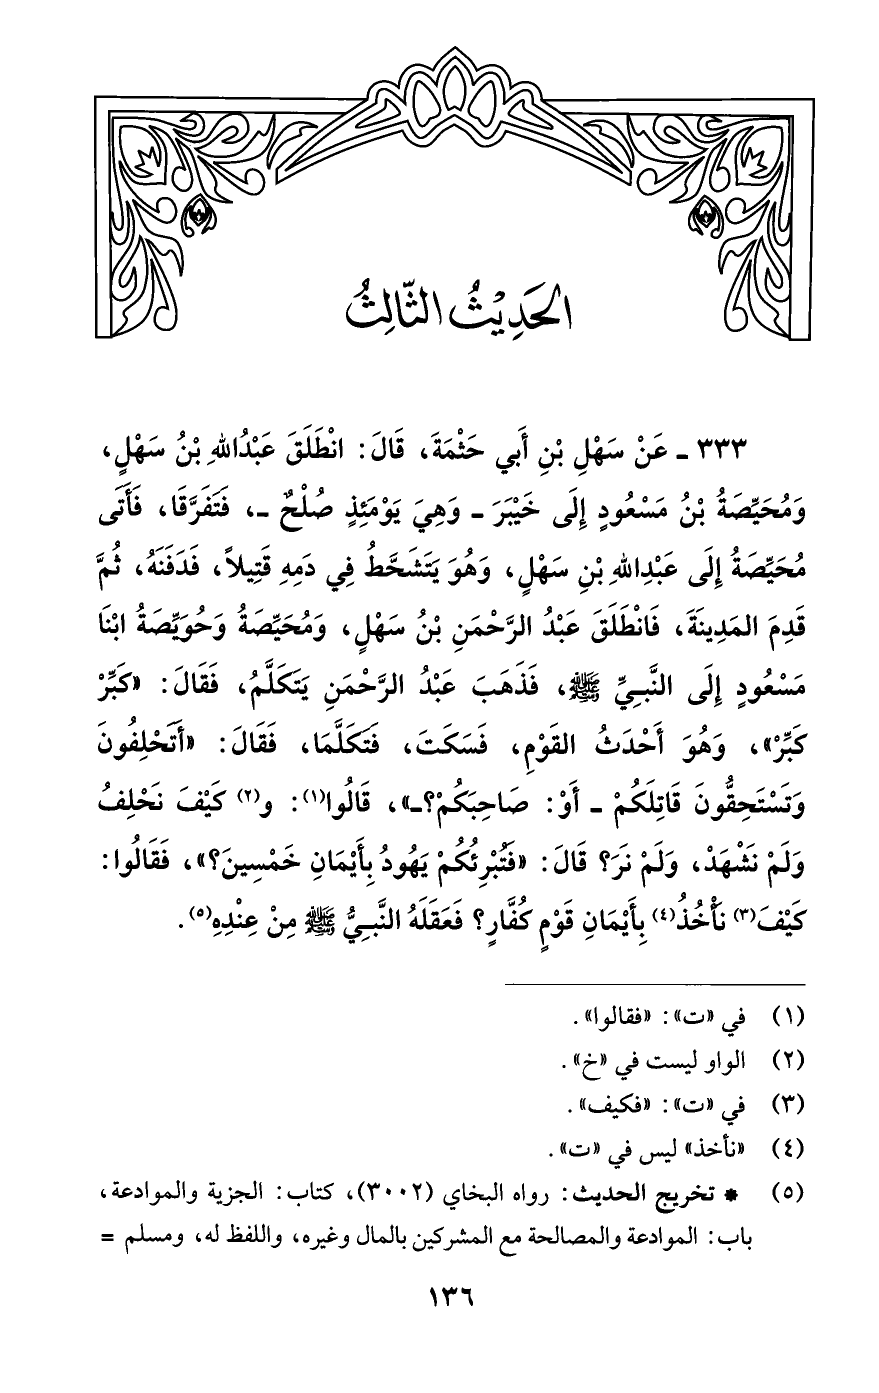 الحَدِيْثُ الثَّالِثُ
٣٣٣ ـ عَنْ سَهْلِ بْنِ أَبي حَثْمَةَ، قَالَ: انْطَلَقَ عَبْدُاللهِ بْنُ سَهْلٍ،
وَمُحَيِّصَةُ بْنُ مَسْعُودٍ إِلَى خَيْبَرَ ـ وَهِيَ يَوْمَئِذٍ صُلْحٌ ـ، فَتَفَرَّقَا، فَأَتَى
مُحَيِّصَةُ إِلَى عَبْدِاللهِ بْنِ سَهْلٍ، وَهُوَ يَتَشَحَّطُ فِي دَمِهِ قَتِيلاً، فَدَفَنَهُ، ثُمَّ
قَدِمَ المَدِينَةَ، فَانْطَلَقَ عَبْدُ الرَّحْمَنِ بْنُ سَهْلٍ، وَمُحَيِّصَةُ وَحُوَيِّصَةُ ابْنَا
مَسْعُودٍ إِلَى النَّبِيِّ ﷺ، فَذَهَبَ عَبْدُ الرَّحْمَنِ يَتَكَلَّمُ، فَقَالَ: «كَبِّرْ
كَبِّرْ»، وَهُوَ أَحْدَثُ القَوْمِ، فَسَكَتَ، فَتَكَلَّمَا، فَقَالَ: «أَتَحْلِفُونَ
وَتَسْتَحِقُّونَ قَاتِلَكُمْ ـ أَوْ: صَاحِبَكُمْ؟ـ»، قَالُوا(١): و(٢) كَيْفَ نَحْلِفُ
وَلَمْ نَشْهَدْ، وَلَمْ نَرَ؟ قَالَ: «فَتُبْرِئُكُمْ يَهُودُ بِأَيْمَانِ خَمْسِينَ؟»، فَقَالُوا:
كَيْفَ(٣) نَأْخُذُ(٤) بِأَيْمَانِ قَوْمٍ كُفَّارٍ؟ فَعَقَلَهُ النَّبِيُّ ﷺ مِنْ عِنْدِهِ(٥).
(١) في «ت»: «فقالوا».
(٢) الواو ليست في «خ».
(٣) في «ت»: «فكيف».
(٤) «نأخذ» ليس في «ت».
(٥) * تخريج الحديث: رواه البخاي (٣٠٠٢)، كتاب: الجزية والموادعة،
باب: الموادعة والمصالحة مع المشركين بالمال وغيره، واللفظ له، ومسلم =
١٣٦